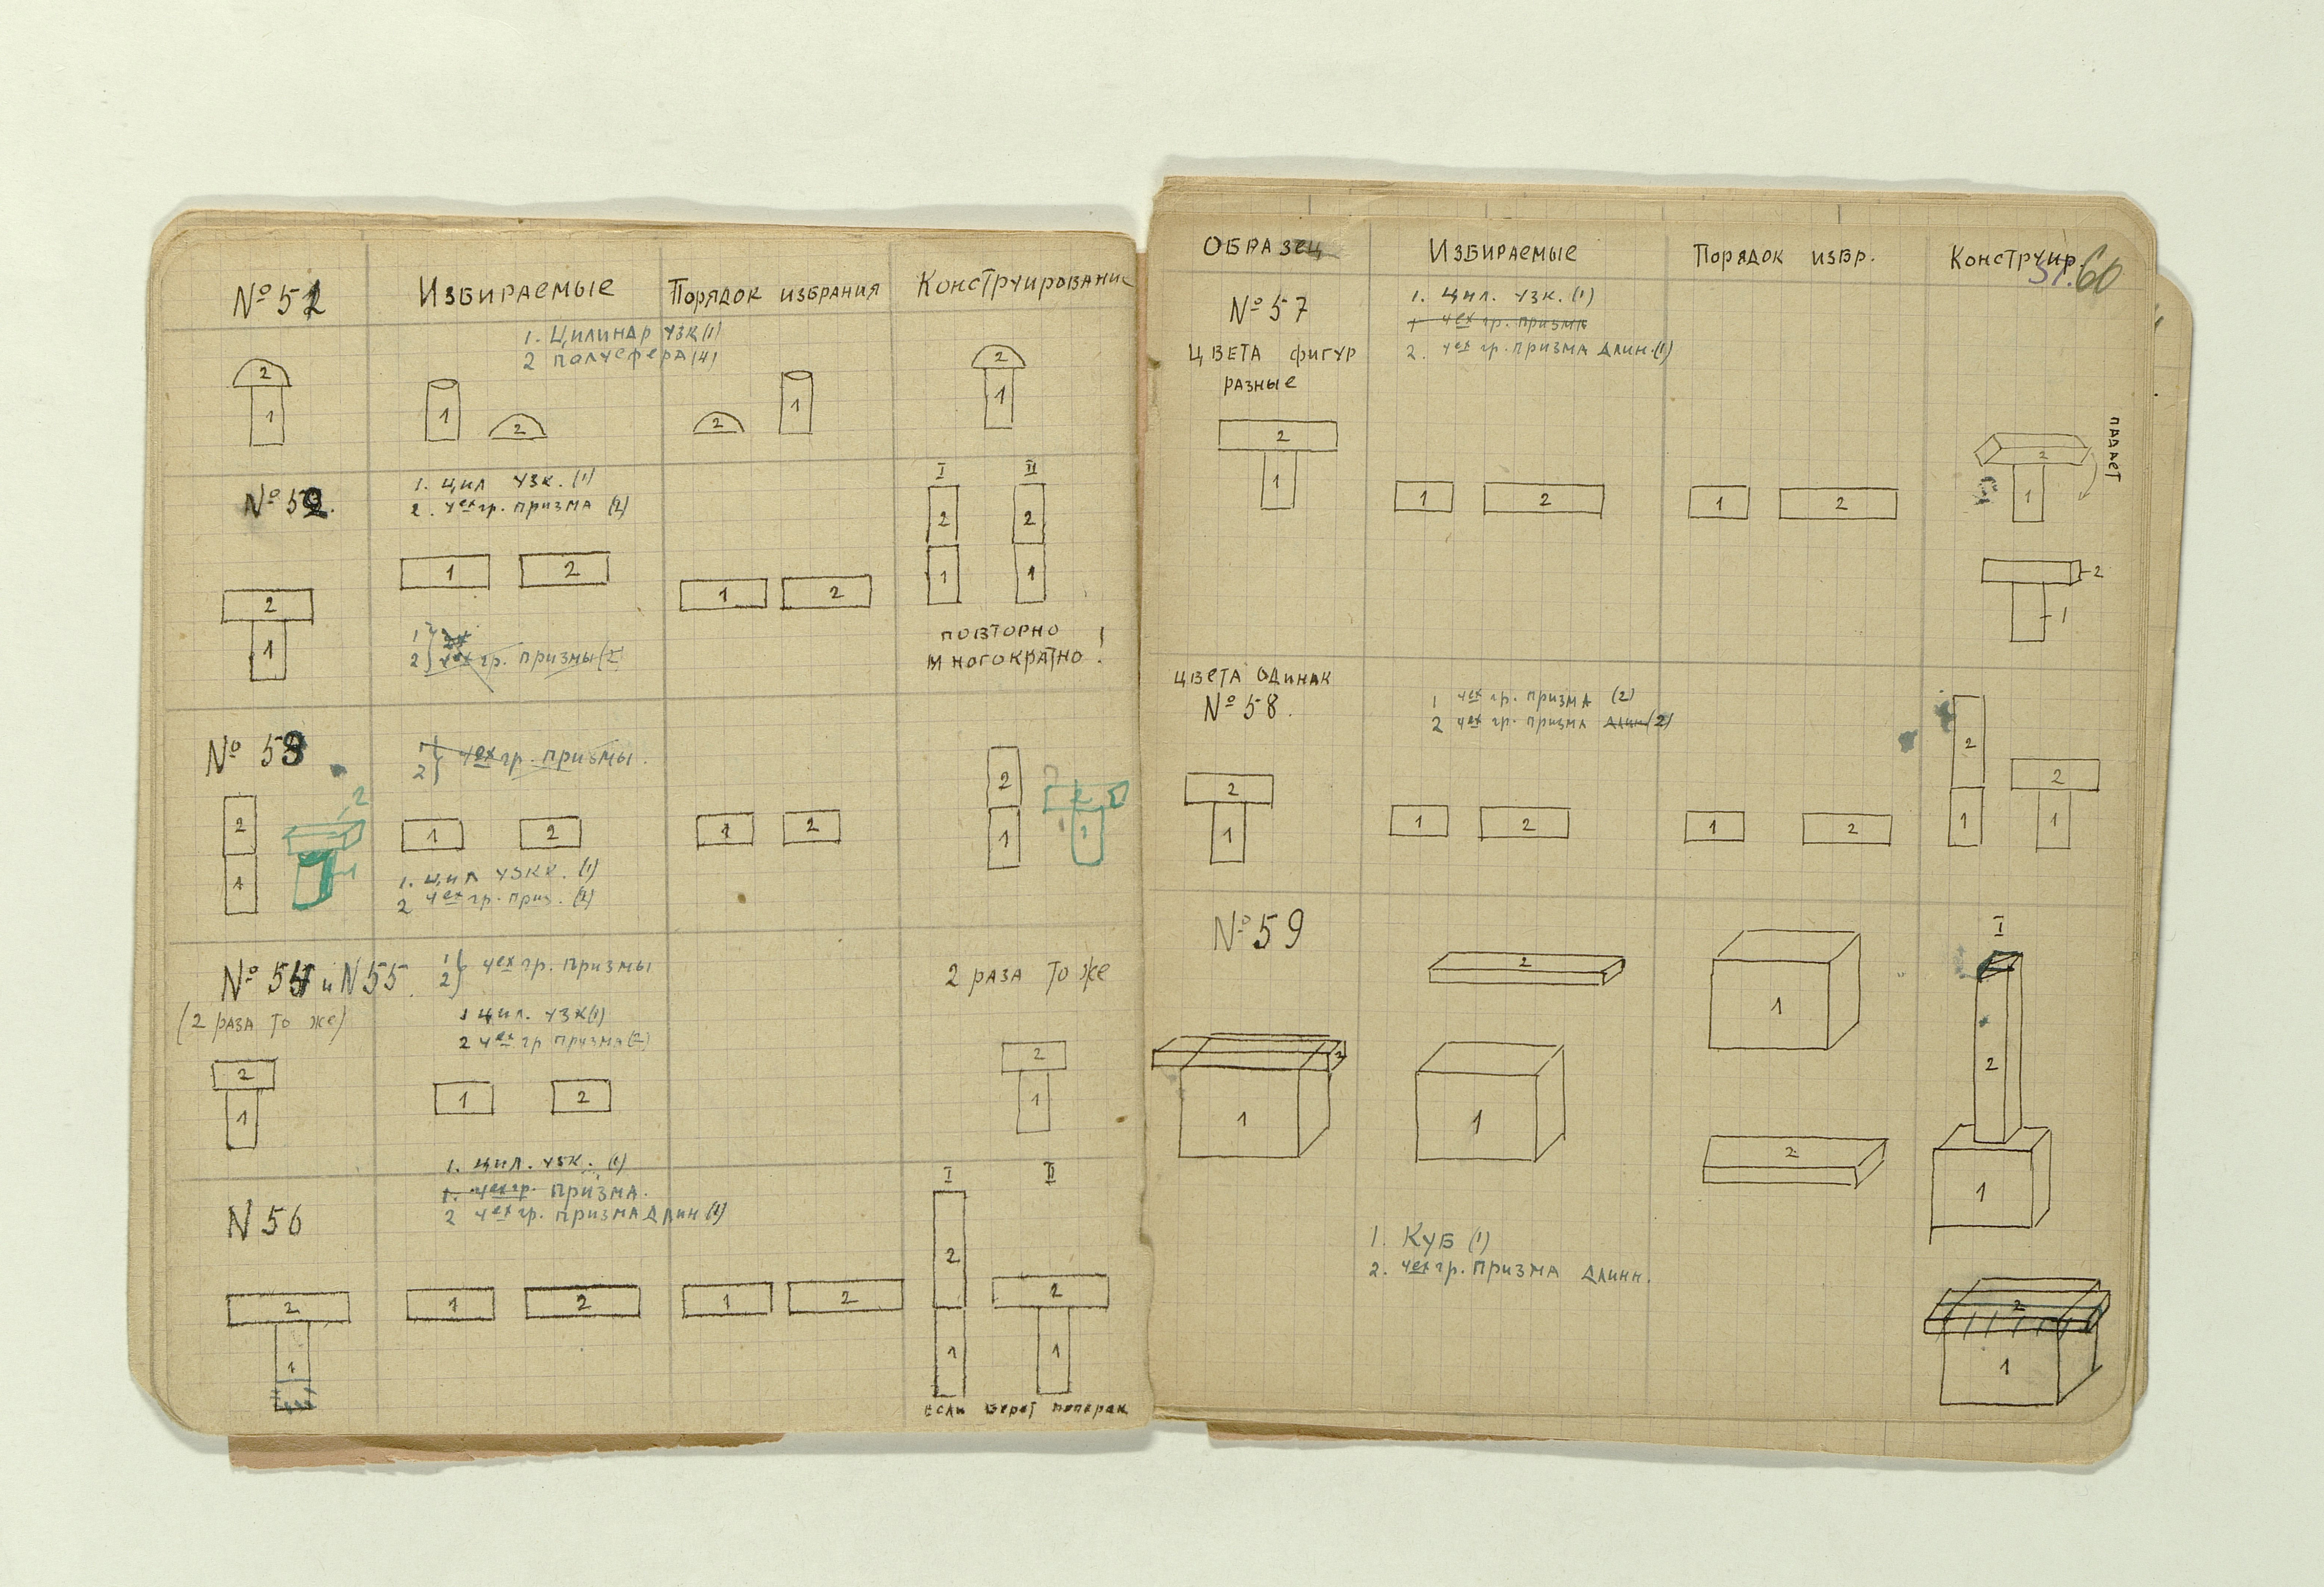 № 51
Избираемые
Порядок избрания
Конструирование
1. Цилиндр узк (1)
2 полусфера (4)
2
1
1
2
2
1
2
1
№ 52.
1. цил узк. (1)
2. чех гр. призма (2)
I
II
2
2
1
2
1
2
2
1
1
1
1
2
чех гр. призмы (2
повторно
многократно!
№ 53
1
2
чех гр. призмы.
2
2
2
2
1
1
2
1
2
1
1
1
1. цил узк. (1)
2 чех гр. приз. (2)
№ 54 и N 55.
1
2
чех гр. призмы
2 раза то же
(2 раза то же)
1 цил. узк (1)
2 чех гр призма (2)
2
1
1
2
2
1
1. цил. узк. (1)
1. чех гр. призма.
2 чех гр. призма длин (1)
N 56
I
II
2
1
1
2
1
2
2
1
2
1
если берет поперек
Образец
Избираемые
Порядок избр.
Конструир.
60
№ 57
1. цил. узк. (1)
1 чех гр. призма
2. чех гр. призма длин. (1)
цвета фигур
разные
2
1
1
2
1
2
2
1
падает
2
1
цвета одинак
№ 58.
1 чех гр. призма (2)
2 чех гр. призма длин (2)
2
1
1
2
1
2
2
1
2
1
№ 59
I
2
1
2
1
1
2
2
1
1. Куб (1)
2. чех гр. призма длинн.
2
1